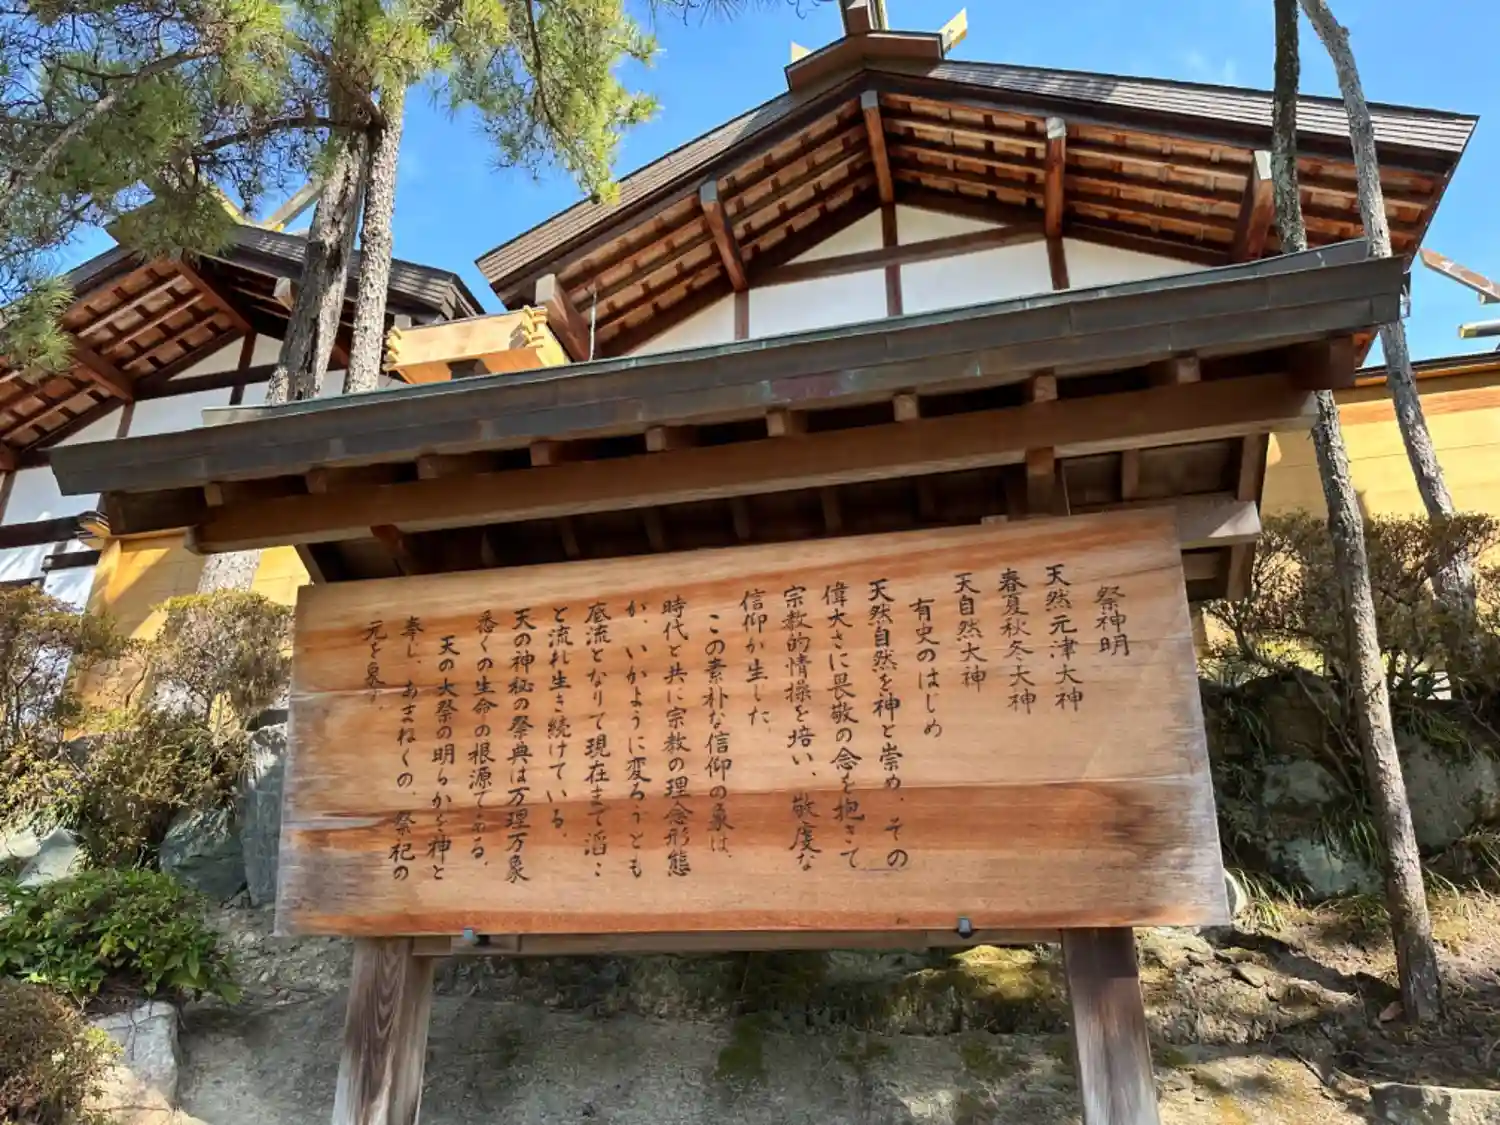 祭神明
天然元津大神
春夏秋冬大神
天自然大神
有史のはじめ
天然自然を神と崇め、その
偉大さに畏敬の念を抱きて
宗教的情操を培い、敬虔な
信仰が生した
この素朴な信仰の象は、
時代と共に宗教の理念形態
が、いかように変ろうとも
底流となりて現在まで滔々
と流れ生き続けている。
天の神秘の祭典は万理万象
悉くの生命の根源である。
天の大祭の明らかを神と
奉し、あまねくの、祭祀の
元を象す。